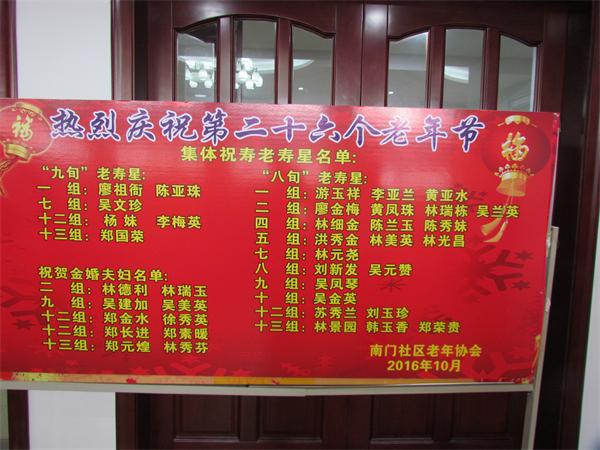 热烈庆祝第二十六个老年节
集体祝寿老寿星名单:
“九旬”老寿星:
一 组: 廖祖衙 陈亚珠
七 组: 吴文珍
十二组: 杨 妹 李梅英
十三组: 郑国荣
祝贺金婚夫妇名单:
二 组: 林德利 林瑞玉
九 组: 吴建加 吴美英
十二组: 郑金水 徐秀英
十二组: 郑长进 郑素暖
十三组: 郑元煌 林秀芬
“八旬”老寿星:
一 组: 游玉祥 李亚兰 黄亚水
二 组: 廖金梅 黄凤珠 林瑞栋 吴兰英
四 组: 林细金 陈兰玉 陈秀妹
五 组: 洪秀金 林美英 林光昌
七 组: 林元尧
八 组: 刘新发 吴元赞
九 组: 吴凤琴
十 组: 吴金英
十二组: 苏秀兰 刘玉珍
十三组: 林景园 韩玉香 郑荣贵
南门社区老年协会
2016年10月
福
福